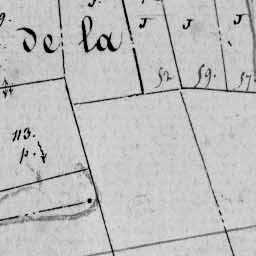 J. J J
de la
52 59. 57.
113.
p.